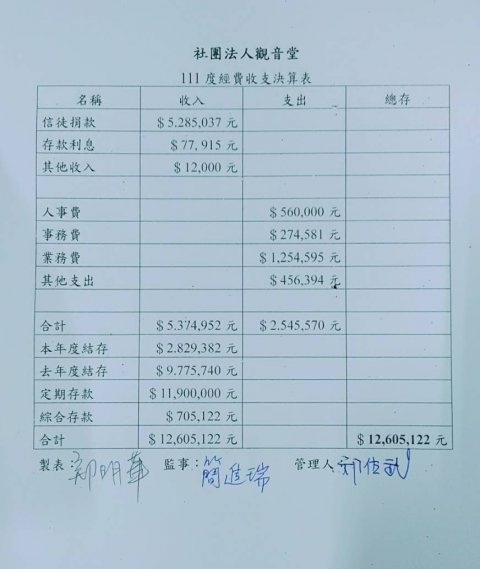 社團法人觀音堂
111 度經費收支決算表
名稱 收入 支出 總存
信徒捐款 $ 5.285,037 元
存款利息 $ 77, 915 元
其他收入 $ 12,000 元
人事費 $ 560,000 元
事務費 $ 274,581 元
業務費 $ 1,254,595 元
其他支出 $ 456,394 元
合計 $ 5.374,952 元 $ 2.545,570 元
本年度結存 $ 2.829,382 元
去年度結存 $ 9.775,740 元
定期存款 $ 11,900,000 元
綜合存款 $ 705,122 元
合計 $ 12,605,122 元 $ 12,605,122 元
製表: 鄭明華 監事: 簡進瑞 管理人